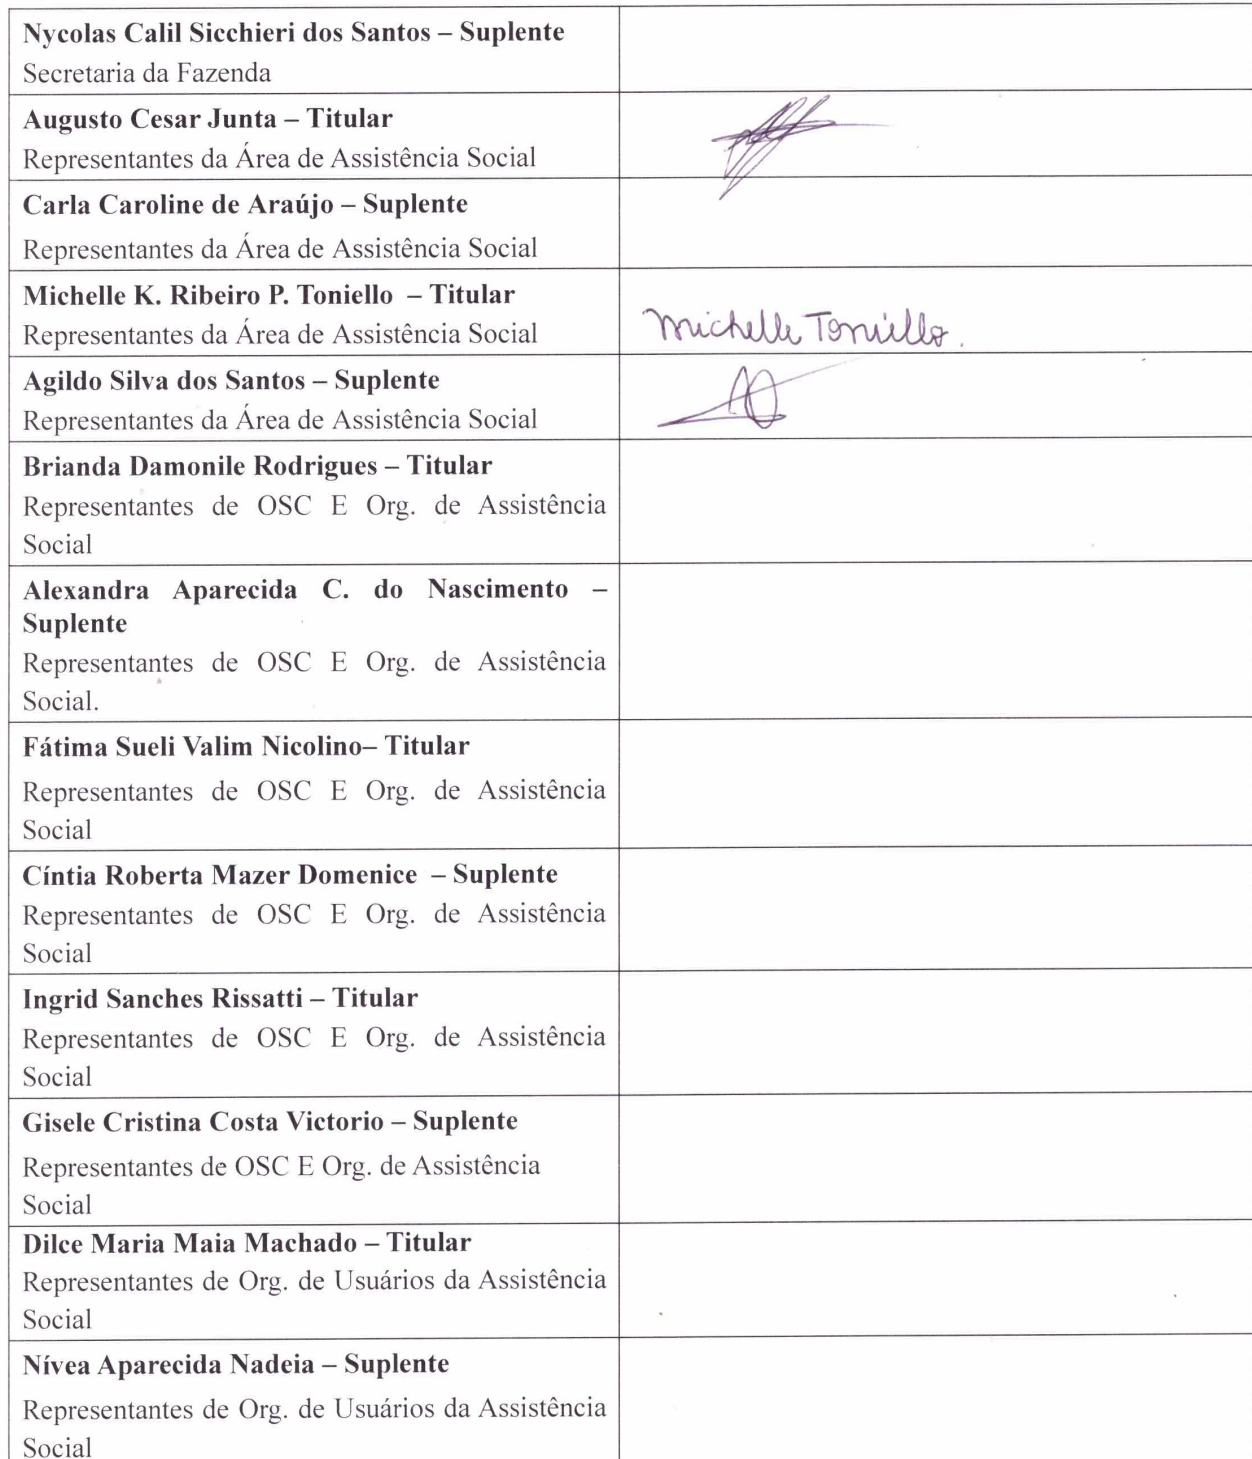 Nycolas Calil Sicchieri dos Santos – Suplente
Secretaria da Fazenda
Augusto Cesar Junta – Titular
Representantes da Área de Assistência Social
Carla Caroline de Araújo – Suplente
Representantes da Área de Assistência Social
Michelle K. Ribeiro P. Toniello – Titular
Representantes da Área de Assistência Social
Michelle Toniello.
Agildo Silva dos Santos – Suplente
Representantes da Área de Assistência Social
Brianda Damonile Rodrigues – Titular
Representantes de OSC E Org. de Assistência
Social
Alexandra Aparecida C. do Nascimento –
Suplente
Representantes de OSC E Org. de Assistência
Social.
Fátima Sueli Valim Nicolino– Titular
Representantes de OSC E Org. de Assistência
Social
Cíntia Roberta Mazer Domenice – Suplente
Representantes de OSC E Org. de Assistência
Social
Ingrid Sanches Rissatti – Titular
Representantes de OSC E Org. de Assistência
Social
Gisele Cristina Costa Victorio – Suplente
Representantes de OSC E Org. de Assistência
Social
Dilce Maria Maia Machado – Titular
Representantes de Org. de Usuários da Assistência
Social
Nívea Aparecida Nadeia – Suplente
Representantes de Org. de Usuários da Assistência
Social